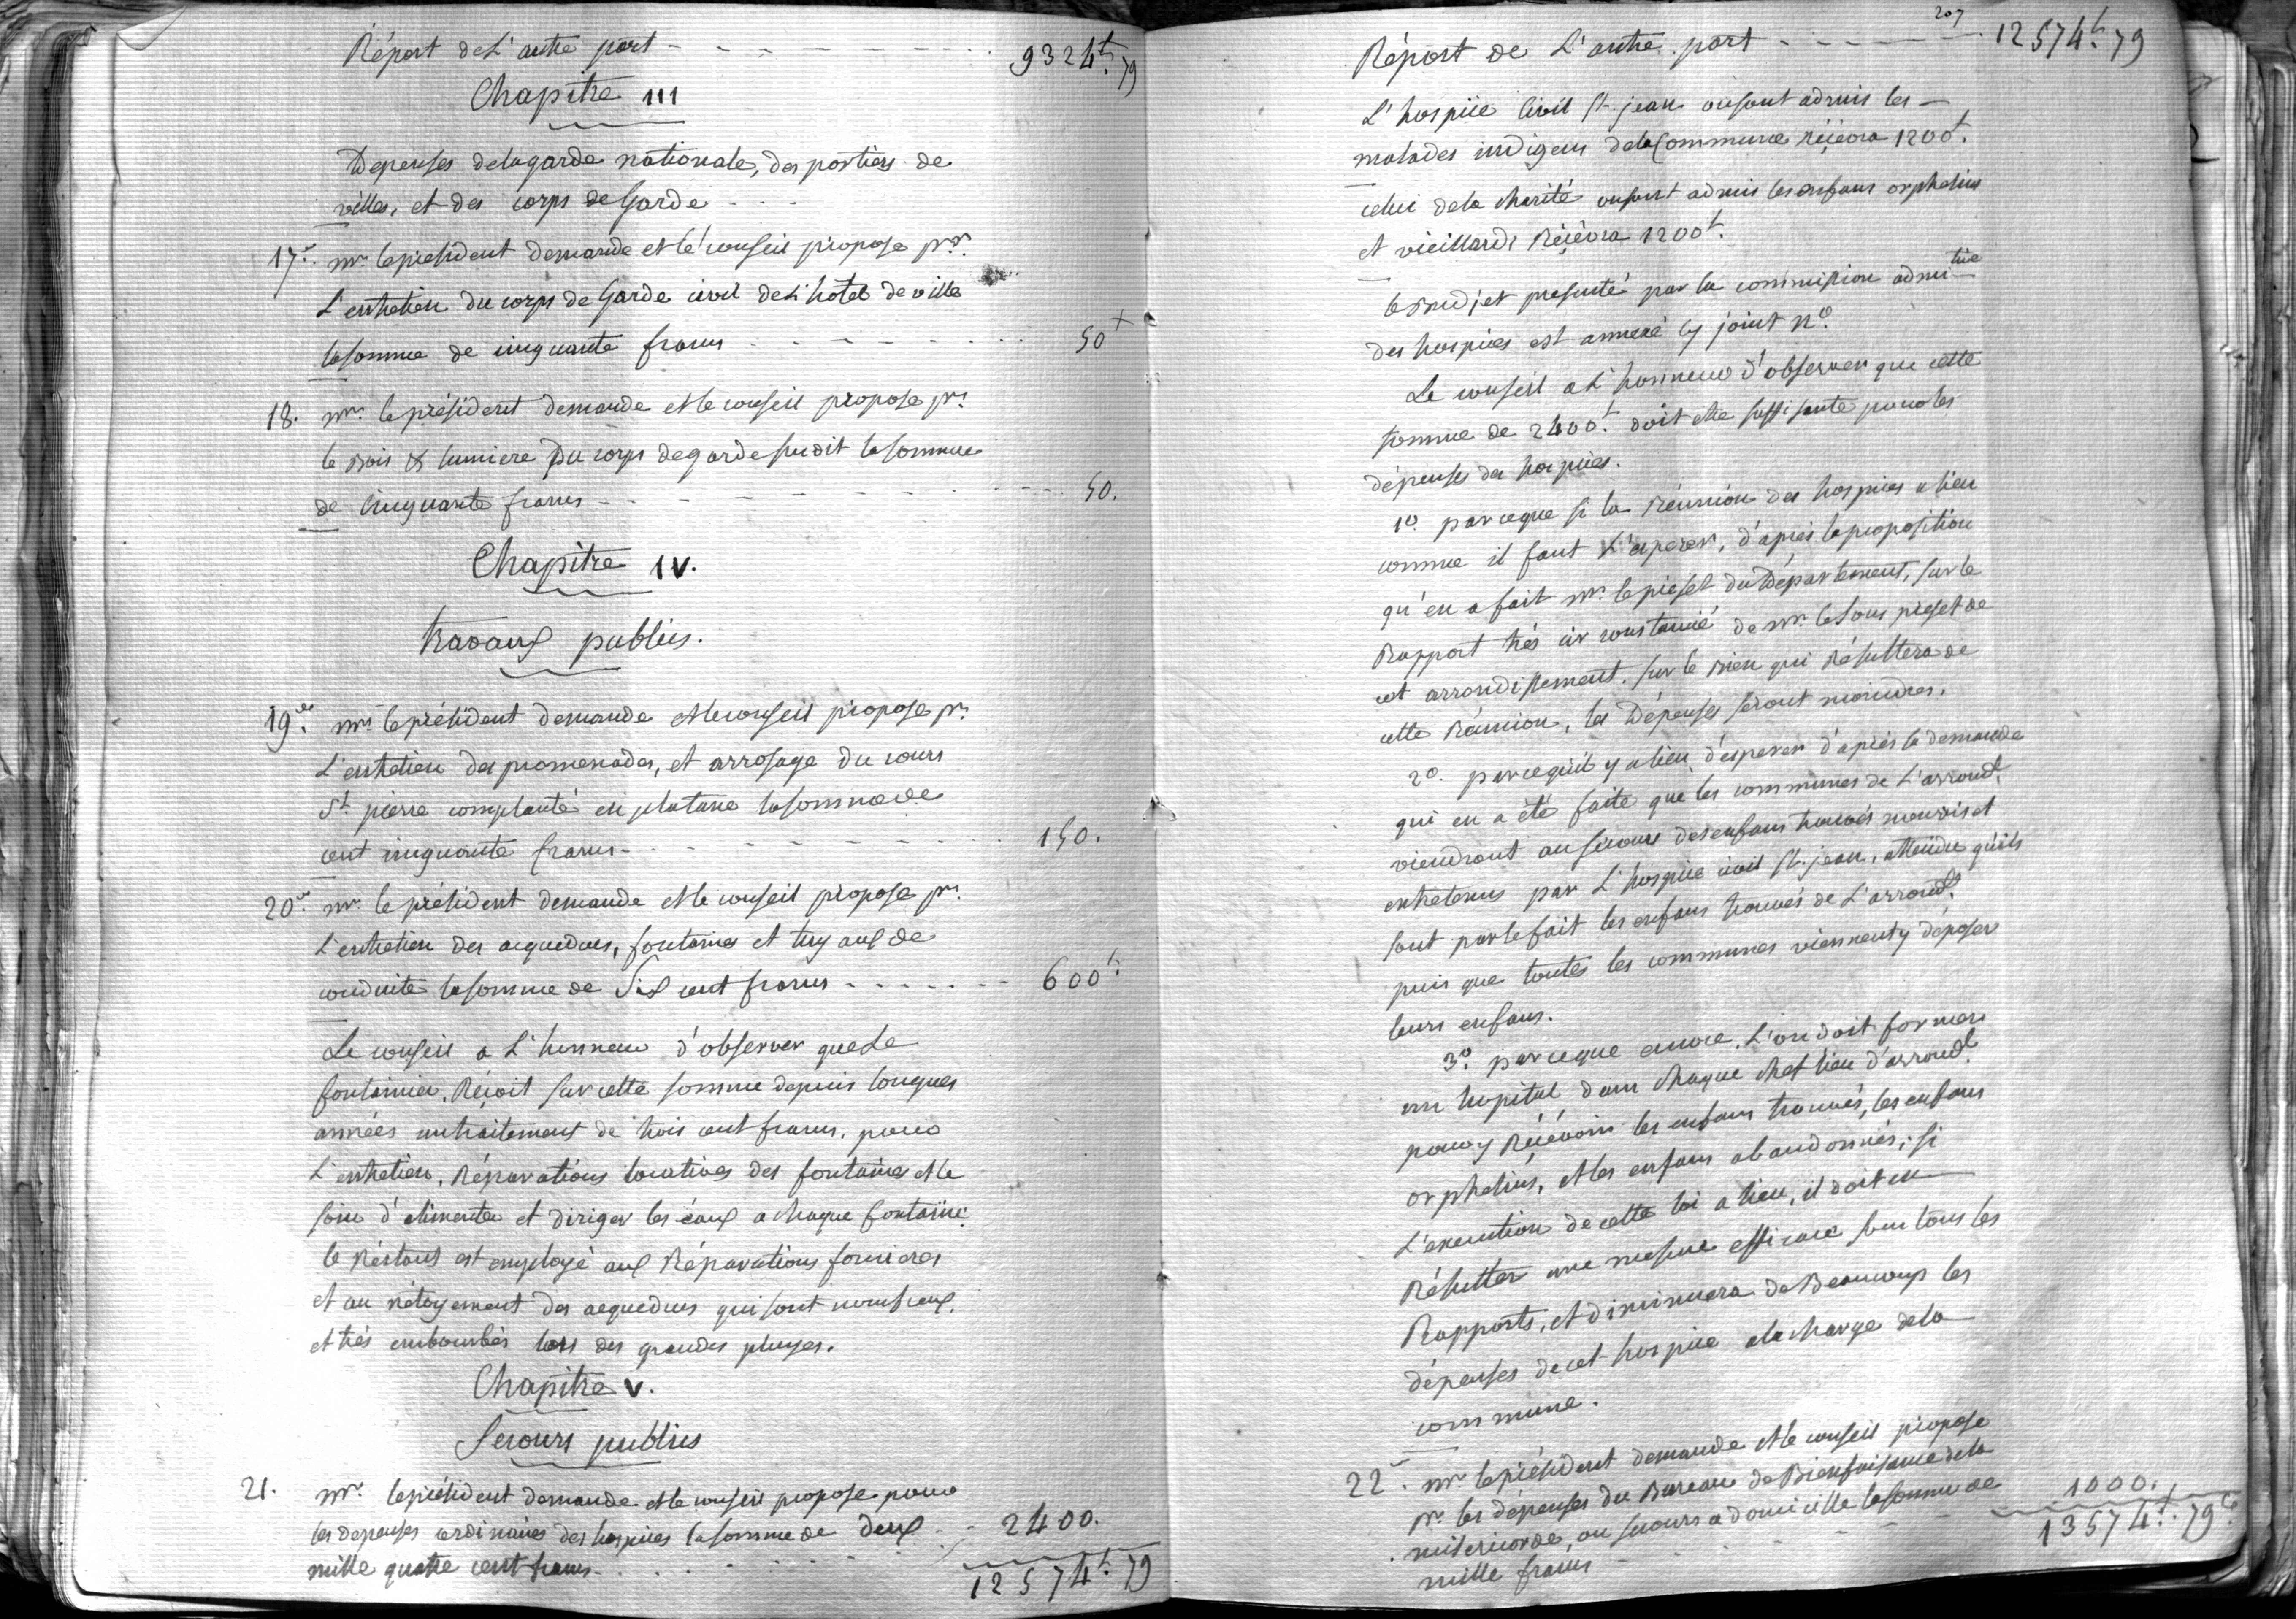 Réport de L'autre part - - - - - - - - 9324t. 79
Chapitre III
Depenses de la garde nationale, des portiers de
villes, et des corps de Garde - - -
17.e mr. le président demande et le conseil propose pr.
L'entretien du corps de Garde civil de L'hotel de ville
la somme de cinquante francs - - - - - - 50t
18. mr. le président demande et le conseil propose pr.
le Bois & lumiere Du corps de garde susdit la somme
de Cinquante francs - - - - - - - - 50.
Chapitre IV.
travaux publics.
19.e mr. le président demande et le conseil propose pr.
L'entretien des promenades, et arrosage du cours
St. pierre complanté en platane la somme de
cent cinquante francs - - - - - - - 150.
20.e mr. le président demande et le conseil propose pr.
L'entretien des aqueducs, fontaines et tuyaux de
conduite la somme de Six cent francs - - - - - - 600t.
Le conseil a L'honneur d'observer que Le
fontainier, Réçoit sur cette somme depuis longues
années un traitement de trois cent francs, pour
L'entretien, Réparations locatives des fontaines et le
soin d'alimenter et diriger les éaux a chaque fontaine.
le Réstant est employé aux Réparations foncieres
et au nétoyement des aequeducs qui sont nombreux,
et trés embourbés lors des grandes pluyes.
Chapitre V.
Secours publics
21. mr. le président demande et le conseil propose pour
les depenses ordinaires des hospices la somme de deux - - 2400.
mille quatre cent francs - - - - - -
12574t. 79
207
Réport de L'autre part - - - - - 12574t. 79
L'hospice Civil St. jean où sont admis les -
malades indigens de la Commune réçevra 1200t.
celui de la charité ou sont admis les enfans orphelins
et vieillards Réçévra 1200t.
le Budjet presenté par la commission admitive
des hospices est annexé cy joint no.
Le conseil a L'honneur d'observer que cette
somme de 2400t. doit etre suffisante pour les
dépenses des hospices.
1o. parceque si la Réunion des hospices a lieu
comme il faut L'esperer, d'aprés la proposition
qu'en a fait mr. le préfet du Département, sur le
Rapport trés circonstancié de mr. le Sous prefet de
cet arrondissement, sur le Bien qui Résultera de
cette Réunion, les Dépenses seront moindres.
2o. parcequ'il y a lieu d'esperer d'aprés la demande
qui en a été faite que les communes de L'arrondt.
viendront au sécours des enfans trouvés nourris et
entretenus par L'hospice civil St. jean, attendu qu'ils
sont par le fait les enfans trouvés de L'arrondt.
puis que toutes les communes viennent y déposer
leurs enfans.
3o. parceque encore L'on doit former
un hopital dans chaque chef lieu d'arrondt.
pour y Réçévoir les enfans trouvés, les enfans
orphelins, et les enfans abandonnés; si
L'execution de cette loi a lieu, il doit en
Résulter une mesure efficace sur tous les
Rapports, et diminuera de Beaucoup les
dépenses de cet hospice a la charge de la
commune.
22. mr. le président demande et le conseil propose
pr. les dépenses du Bureau de Bienfaisance de la
misericorde, ou secours a domicille la somme de
mille francs - - - - - - 1000.
13574t. 79c